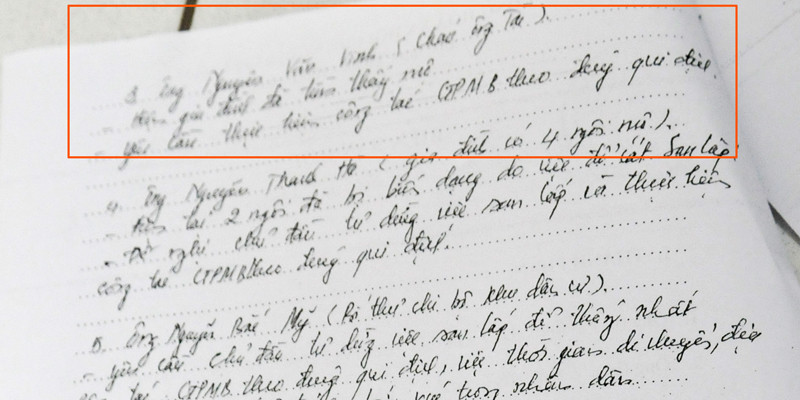 3. Ông Nguyễn Văn Vinh (cháu ông Tài).
- Hiện gia đình đã tìm thấy mộ
- yêu cầu thực hiện công tác GPMB theo đúng qui định.
4. Ông Nguyễn Thanh Hà (gia đình có 4 ngôi mộ).
- Hiện tại 2 ngôi đã bị biến dạng do việc đổ cát san lấp.
- Đề nghị chủ đầu tư dừng việc san lấp và thực hiện
công tác GPMB theo đúng qui định.
5. Ông Nguyễn Bắc Mỹ (Bí thư chi bộ khu dân cư).
- yêu cầu chủ đầu tư dừng việc san lấp để thống nhất
tác GPMB theo đúng qui định, việc thời gian di chuyển, địa
trong nhân dân